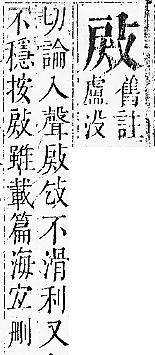 舊註
盧没
切論入聲不滑利又
不穩按雖載篇海宜刪